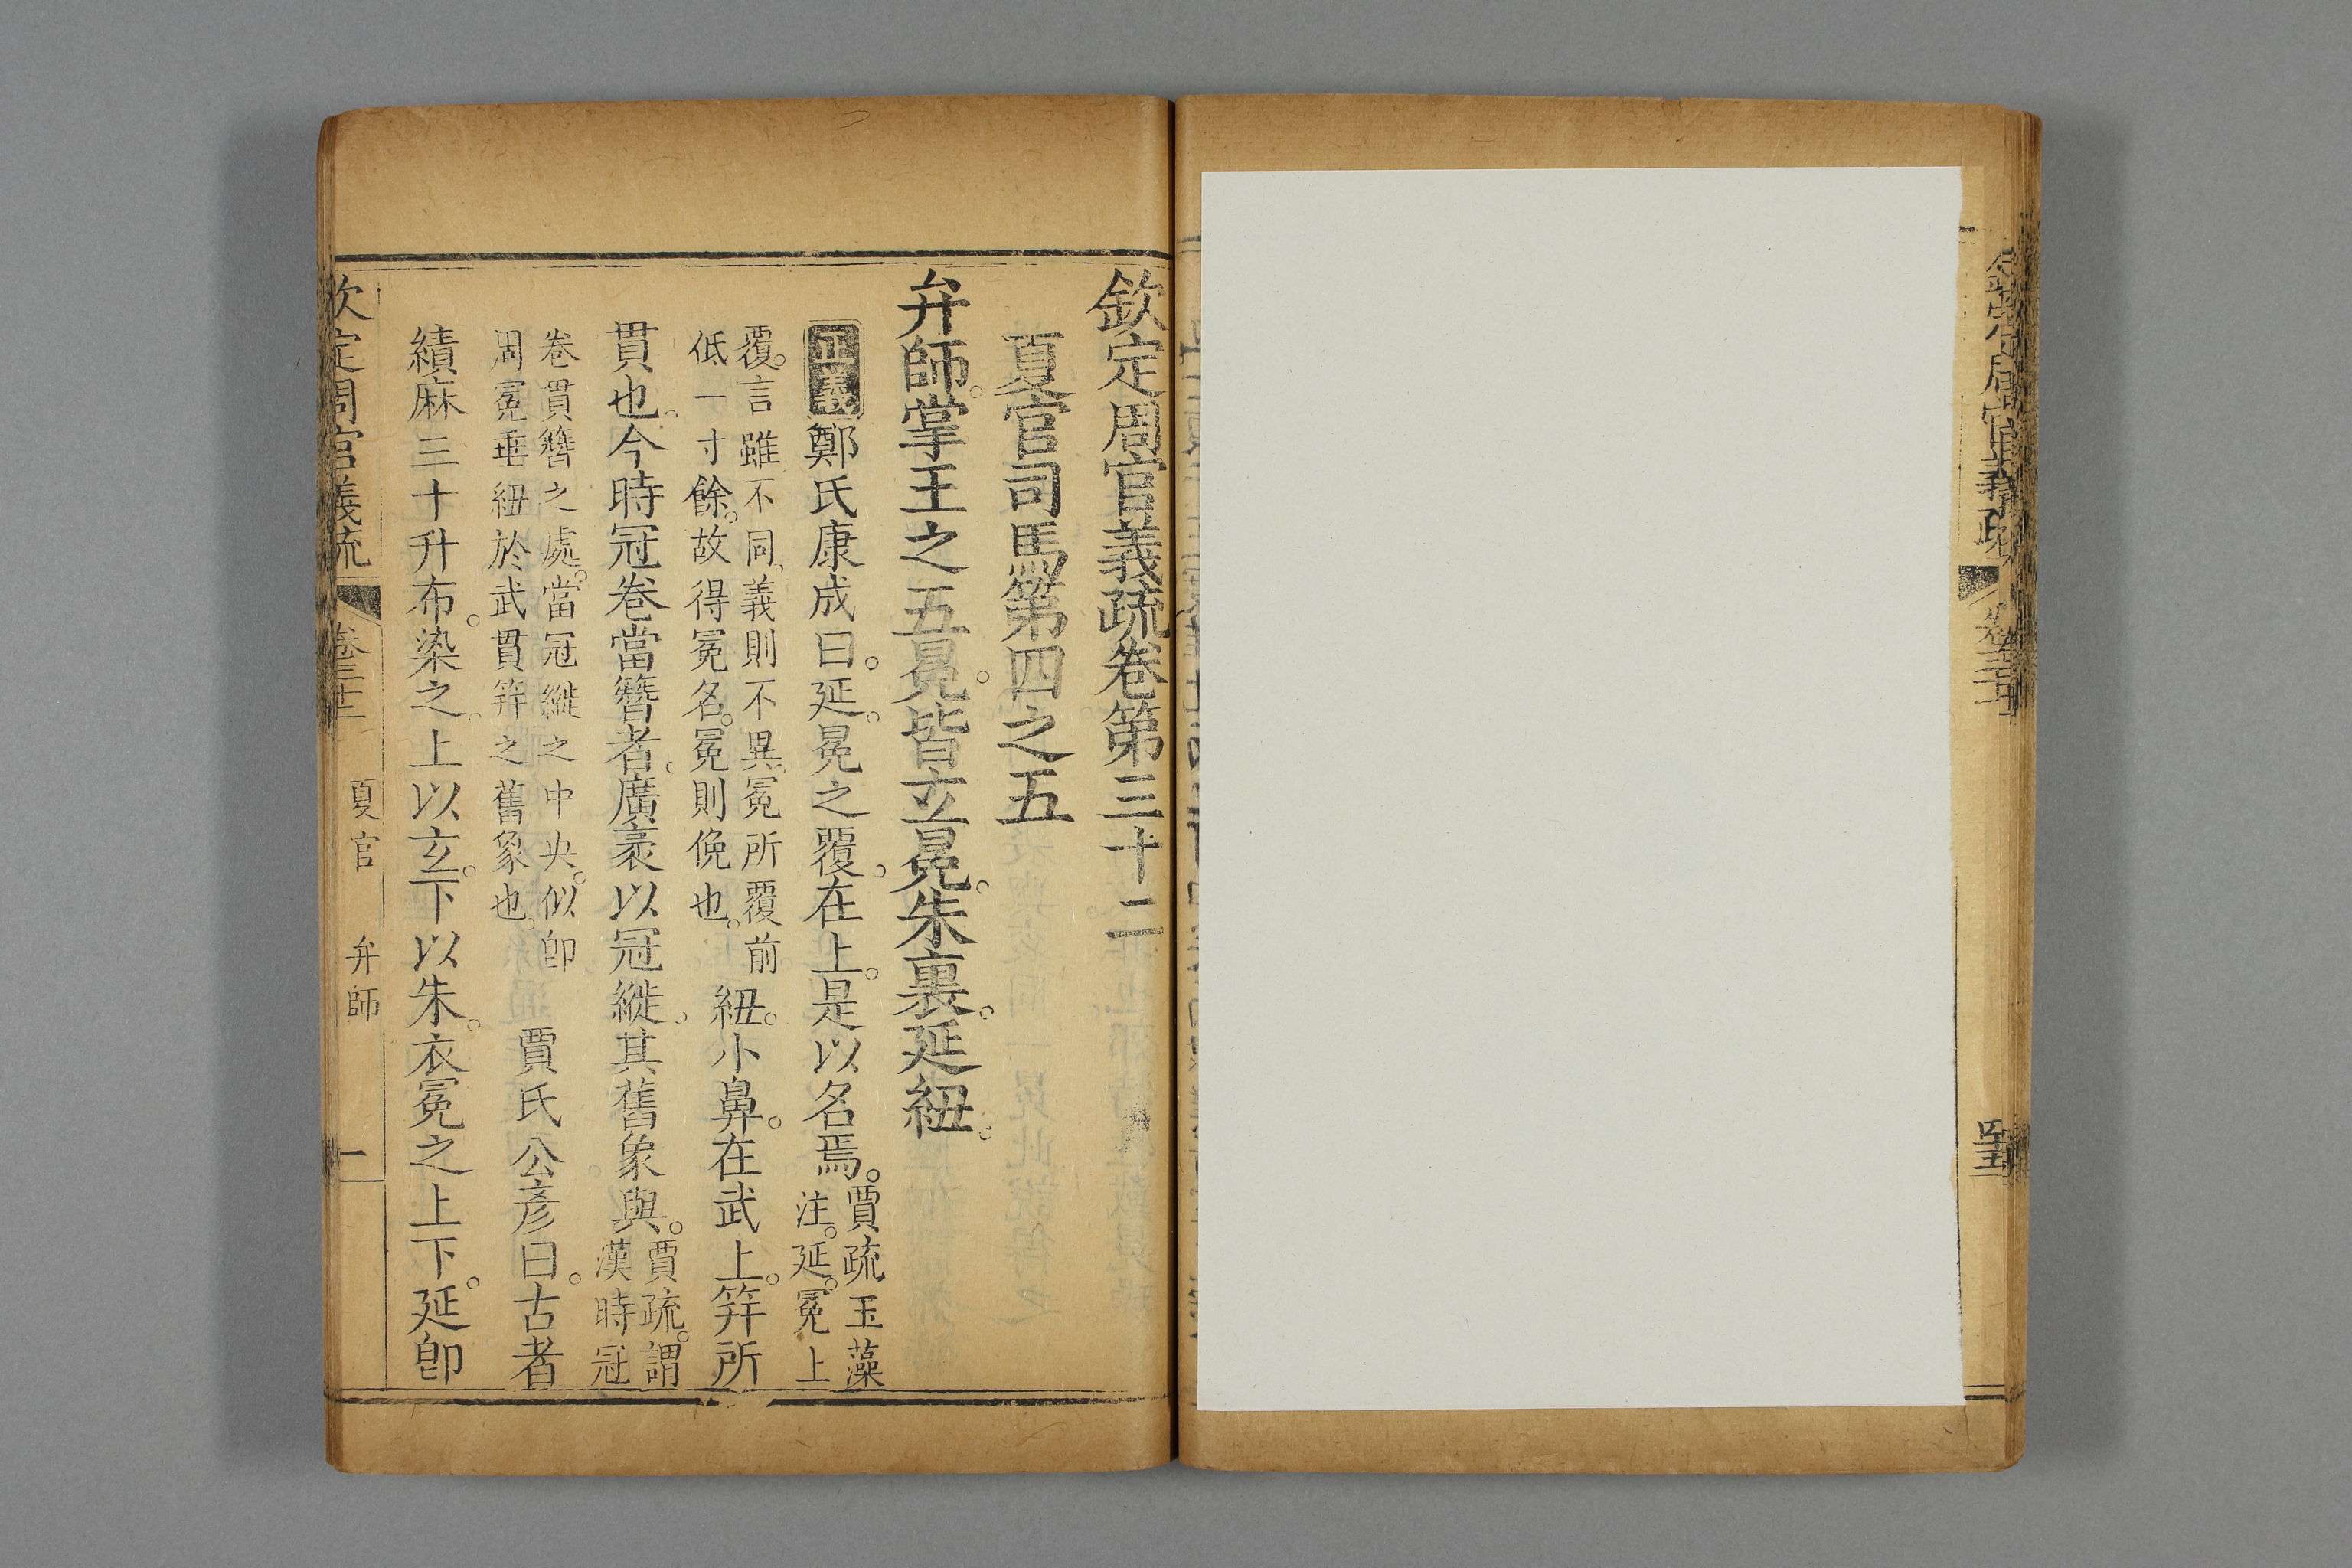 欽定周官義疏卷第三十二
夏官司馬第四之五
弁師。掌王之五冕。皆玄冕。朱裏。延紐。
正義鄭氏康成曰。延。冕之覆。在上。是以名焉。賈疏玉藻
注。延。冕上
覆。言雖不同。義則不異。冕所覆前
低一寸餘。故得冕名。冕則俛也。紐。小鼻。在武上。笄所
貫也。今時冠卷當簪者。廣袤以冠縰。其舊象與。賈疏。謂
漢時冠
卷貫簪之處。當冠縰之中央。似卽
周冕垂紐於武貫笄之舊象也。賈氏公彥曰。古者
績麻三十升布。染之。上以玄。下以朱。衣冕之上下。延卽
欽定周官義疏 卷三十二 夏官 弁師 一
周官義疏